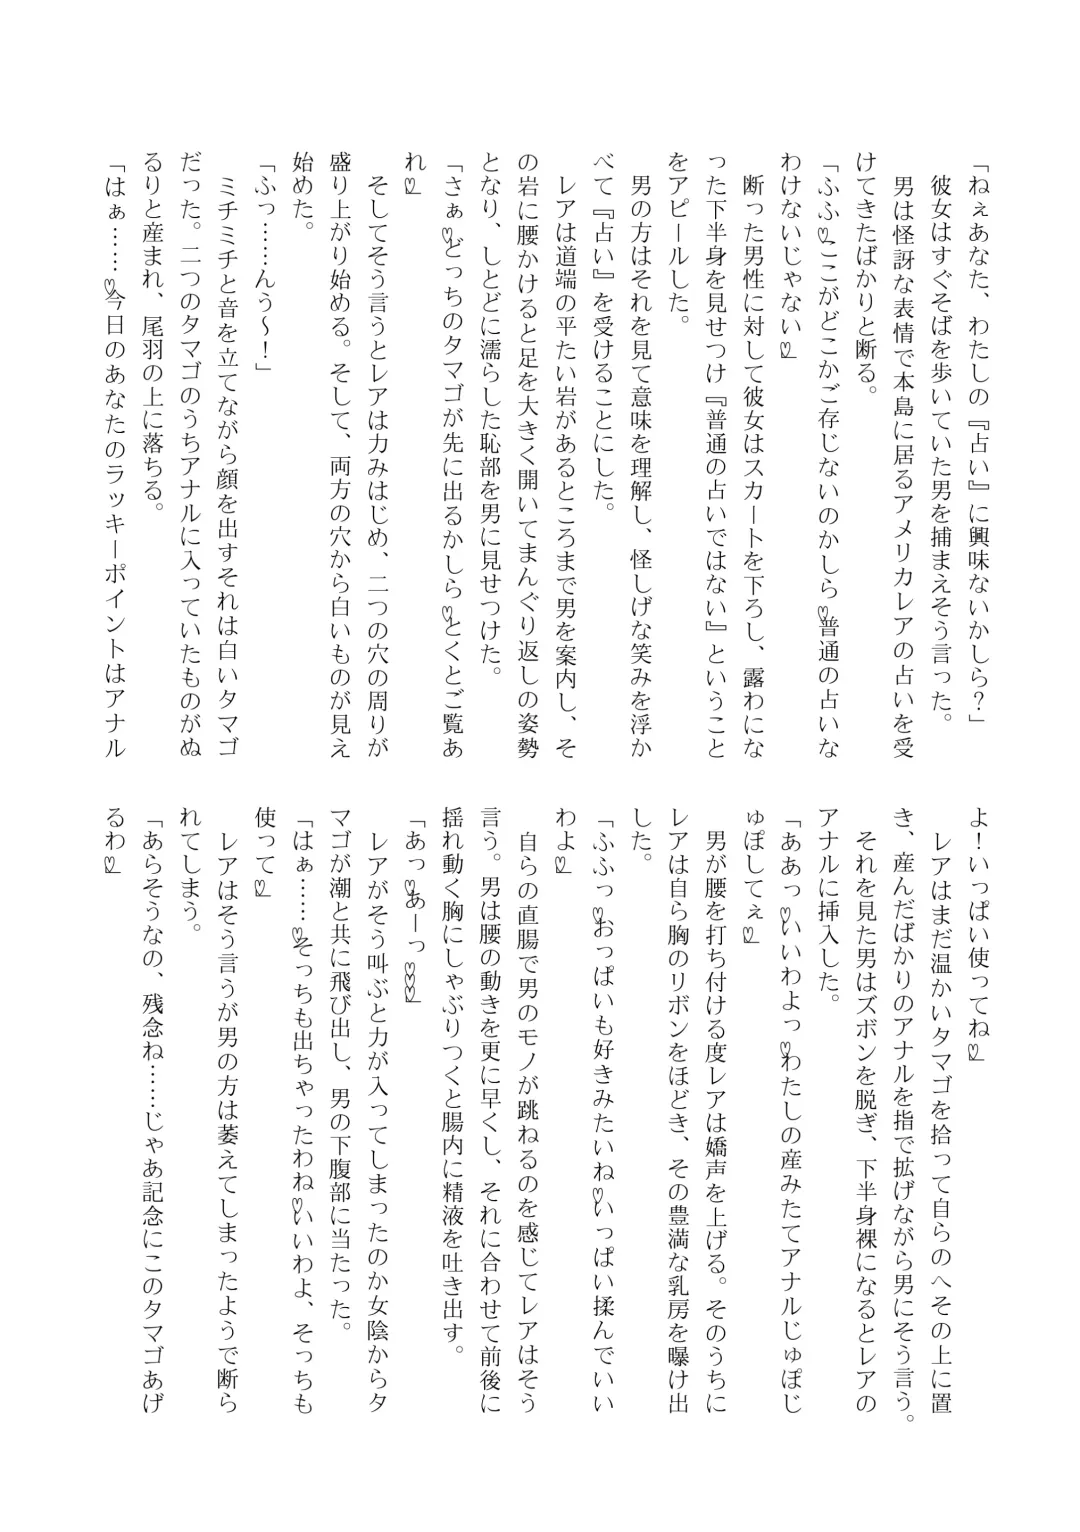 「ねぇあなた、わたしの『占い』に興味ないかしら？」
彼女はすぐそばを歩いていた男を捕まえそう言った。
男は怪訝な表情で本島に居るアメリカレアの占いを受
けてきたばかりと断る。
「ふふ♡ここがどこかご存じないのかしら♡普通の占いな
わけないじゃない♡」
断った男性に対して彼女はスカートを下ろし、露わにな
った下半身を見せつけ『普通の占いではない』ということ
をアピールした。
男の方はそれを見て意味を理解し、怪しげな笑みを浮か
べて『占い』を受けることにした。
レアは道端の平たい岩があるところまで男を案内し、そ
の岩に腰かけると足を大きく開いてまんぐり返しの姿勢
となり、しとどに濡らした恥部を男に見せつけた。
「さぁ♡どっちのタマゴが先に出るかしら♡とくとご覧あ
れ♡」
そしてそう言うとレアは力みはじめ、二つの穴の周りが
盛り上がり始める。そして、両方の穴から白いものが見え
始めた。
「ふっ……んう～！」
ミチミチと音を立てながら顔を出すそれは白いタマゴ
だった。二つのタマゴのうちアナルに入っていたものがぬ
るりと産まれ、尾羽の上に落ちる。
「はぁ……♡今日のあなたのラッキーポイントはアナル
よ！いっぱい使ってね♡」
レアはまだ温かいタマゴを拾って自らのへその上に置
き、産んだばかりのアナルを指で拡げながら男にそう言う。
それを見た男はズボンを脱ぎ、下半身裸になるとレアの
アナルに挿入した。
「ああっ♡いいわよっ♡わたしの産みたてアナルじゅぽじ
ゅぽしてぇ♡」
男が腰を打ち付ける度レアは嬌声を上げる。そのうちに
レアは自ら胸のリボンをほどき、その豊満な乳房を曝け出
した。
「ふふっ♡おっぱいも好きみたいね♡いっぱい揉んでいい
わよ♡」
自らの直腸で男のモノが跳ねるのを感じてレアはそう
言う。男は腰の動きを更に早くし、それに合わせて前後に
揺れ動く胸にしゃぶりつくと腸内に精液を吐き出す。
「あっ♡あーっ♡♡♡」
レアがそう叫ぶと力が入ってしまったのか女陰からタ
マゴが潮と共に飛び出し、男の下腹部に当たった。
「はぁ……♡そっちも出ちゃったわね♡いいわよ、そっちも
使って♡」
レアはそう言うが男の方は萎えてしまったようで断ら
れてしまう。
「あらそうなの、残念ね……じゃあ記念にこのタマゴあげ
るわ♡」